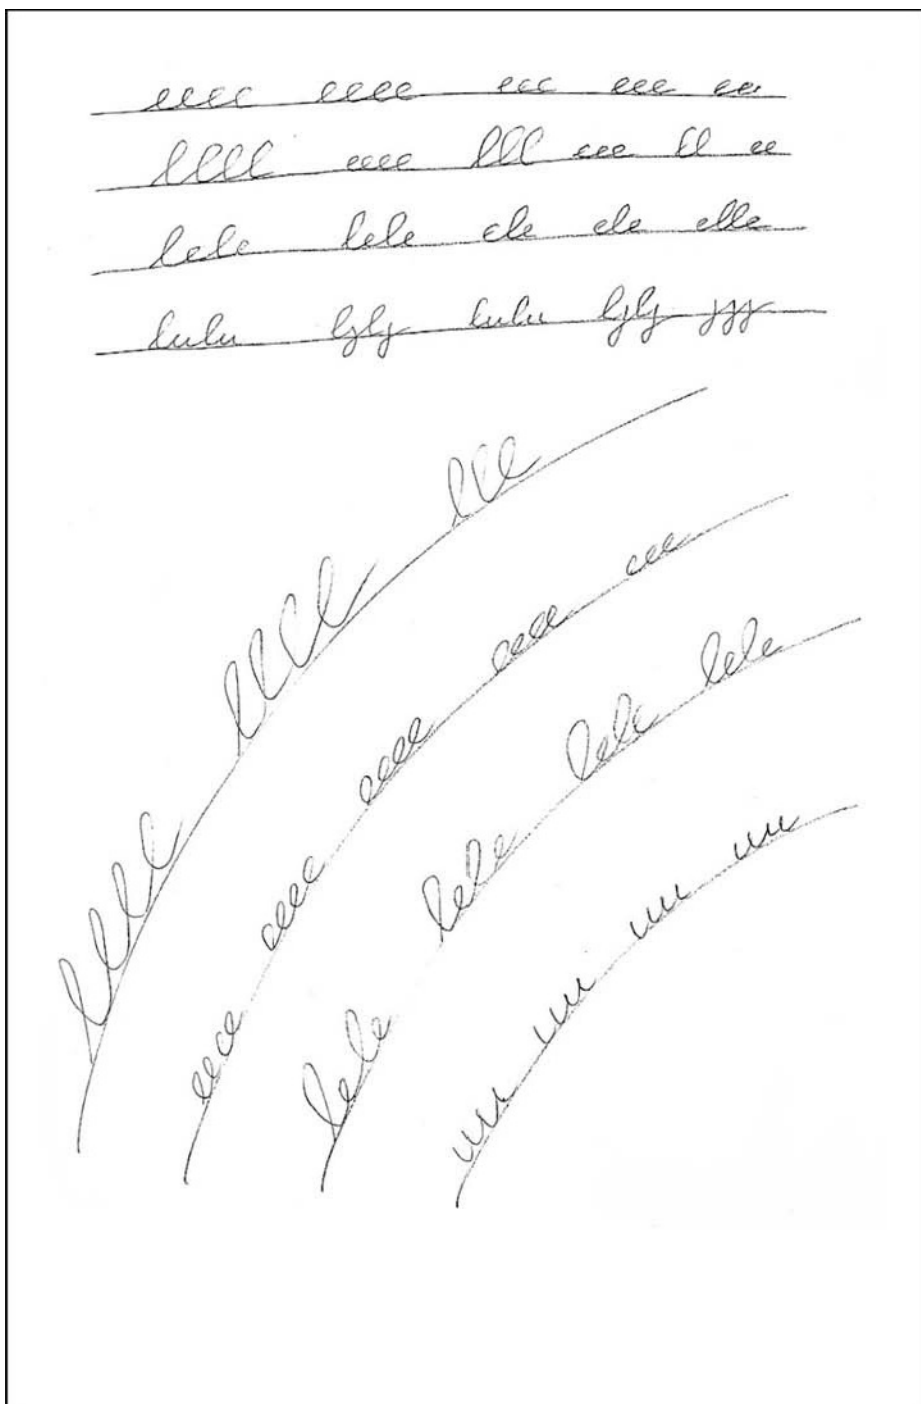 eeee eeee eee eee ee
llll eeee lll eee ll ee
lele lele ele ele elle
lulu ljlj lulu ljlj jjj
llll llll lll
eeee eeee eeee eeee eee
lele lele lele lele
uu uu uu uu